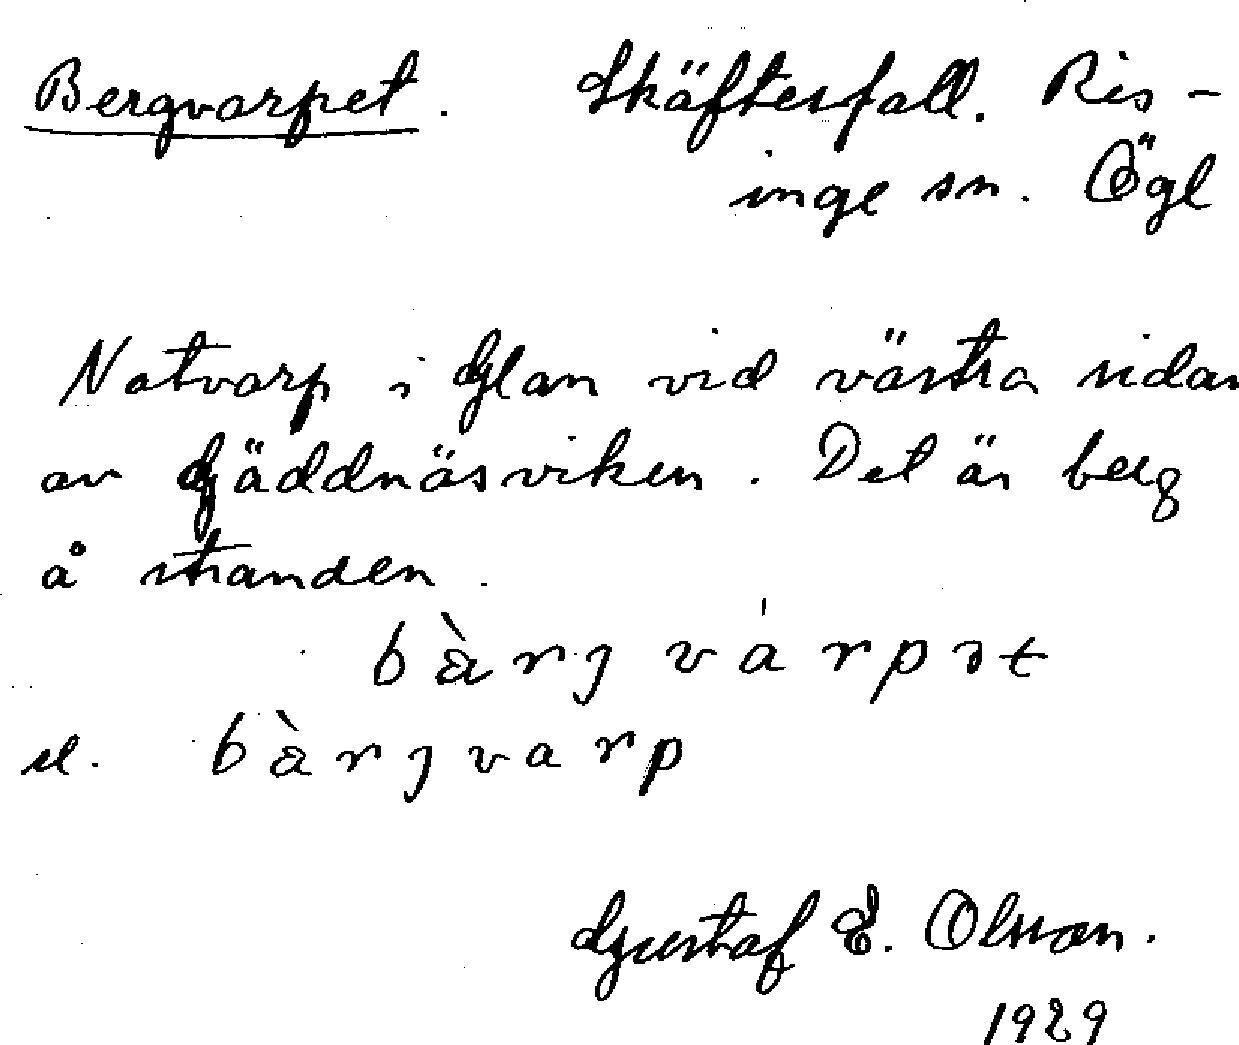 Bergvarpet. Skäftesfall. Ris-
inge sn. Ögl
Notvarp i Glan vid västra sidan
av Gäddnäsviken. Det är berg
å stranden.
bàrj várpət
el. bàrjvarp
Gustaf E. Olsson.
1929